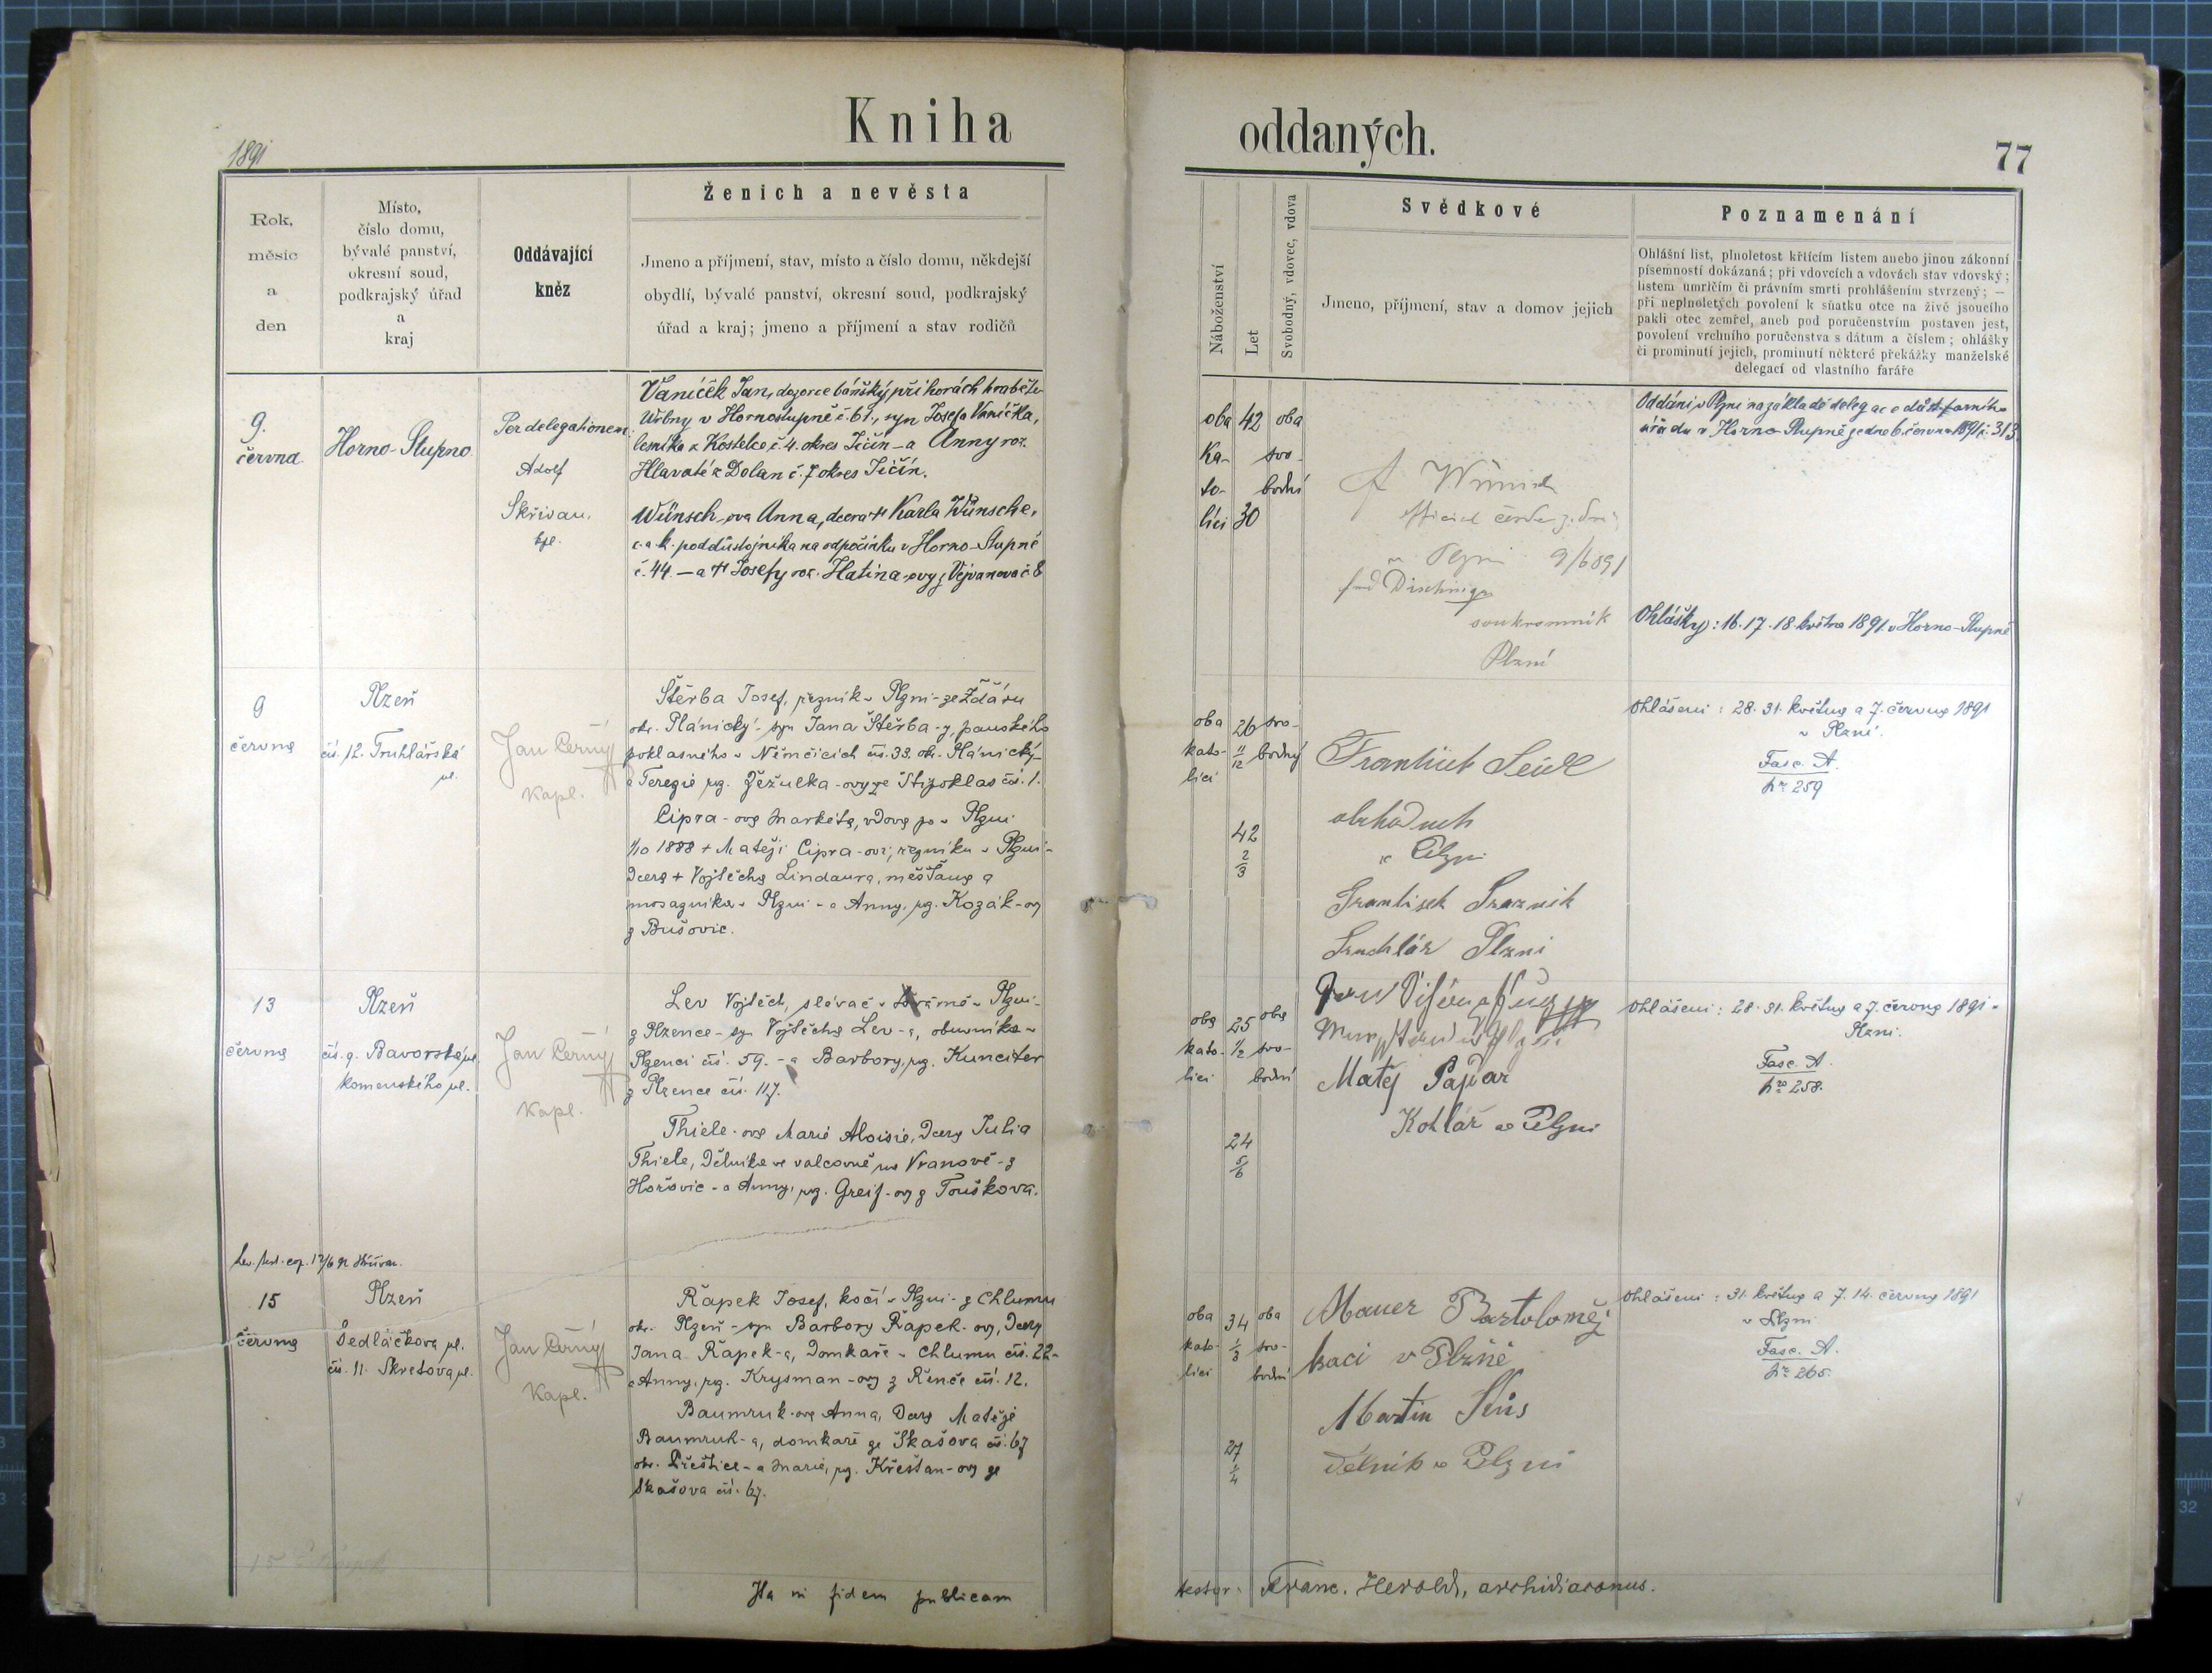 Kniha oddaných.
1891
77
Rok,
měsíc
a
den
Místo,
číslo domu,
bývalé panství,
okresní soud,
podkrajský úřad
a
kraj
Oddávající
kněz
Ženich a nevěsta
Jmeno a příjmení, stav, místo a číslo domu, někdejší
obydlí, bývalé panství, okresní soud, podkrajský
úřad a kraj; jmeno a příjmení a stav rodičů
Náboženství
Let
Svobodný, vdovec, vdova
Svědkové
Jmeno, příjmení, stav a domov jejich
Poznamenání
Ohlášní list, plnoletost křticím listem anebo jinou zákonní
písemností dokázaná; při vdovcích a vdovách stav vdovský;
listem umrlčím či právním smrti prohlášením stvrzený; —
při neplnoletých povolení k sňatku otce na živě jsoucího
pakli otec zemřel, aneb pod poručenstvím postaven jest,
povolení vrchního poručenstva s dátum a číslem; ohlášky
či prominutí jejich, prominutí některé překážky manželské
delegací od vlastního faráře
9.
června
Horno-Stupno
Per delegationem
Adolf
Skřivan,
kpl.
Vaníček Jan, dozorce báňský při horách hraběte
Wrbny v Hornostupně č. 61., syn Josefa Vaníčka,
lesníka z Kostelce č. 4. okres Jičín - a Anny roz.
Hlavaté z Dolan č. 7 okres Jičín.
Wünsch-ova Anna, dcera + Karla Wünsche,
c. a k. poddůstojníka na odpočinku v Horno-Stupně
č. 44. — a + Josefy roz. Hatina-ovy z Vejvanova č 8
oba
ka-
to-
líci
42
30
oba
svo-
bodní
9/6 891
soukromník
Plzni
Oddáni v Plzni na základě delegace důst. farního
úřadu v Horno-Stupně ze dne 6. června 1891 č. 313.
Ohlášky: 16. 17. 18. května 1891 v Horno-Stupně
9
června
Plzeň
čís. 12. Truhlářská
ul.
Jan Černý
kapl.
Štěrba Josef, řezník v Plzni - ze Ždáru
okr. Plánický - syn Jana Štěrba-y, panského
poklasného v Němčicích čís. 33. okr. Plánický -
a Terezie roz. Žežulka-ovy ze Štipoklas čís. 1.
Cipra-ova Markéta, vdova po v Plzni
1/10 1888 + Matěji Cipra-ovi, řezníku v Plzni -
dcera + Vojtěcha Lindaura, měšťana a
mosazníka v Plzni - a Anny, roz. Kozák-ovy
z Bušovic.
oba
kato-
líci
26
11/12
42
2/3
svo-
bodný
František Seidl
obchodník
v Plzni
František
Truhlář Plzni
Ohlášeni: 28. 31. května a 7. června 1891
v Plzni.
Fasc. A.
Nro 259
13
června
Plzeň
čís. 9. Bavorská ul.
Komenského ul.
Jan Černý
kapl.
Lev Vojtěch, slévač v továrně v Plzni -
z Plzence - syn Vojtěcha Lev-a, obuvníka v
Plzenci čís. 59. - a Barbory, roz. Kunciter
z Plzence čís. 117.
Thiele-ova Marie Aloisie, dcera Julia
Thiele, dělníka ve valcovně na Vranově - z
Hořovic - a Anny, roz. Greif-ovy z Touškova.
oba
kato-
líci
25
1/2
24
5/6
oba
svo-
bodní
Matěj
Kotlář v Plzni
Ohlášeni: 28. 31. května a 7. června 1891 v
Plzni.
Fasc. A.
Nro 258.
15
června
Plzeň
Sedláčkova ul.
čís. 11. Skretova ul.
Jan Černý
kapl.
Řapek Josef, kočí v Plzni - z Chlumu
okr. Plzeň - syn Barbory Řapek-ovy, dcery
Jana Řapek-a, domkaře v Chlumu čís. 22 -
a Anny, roz. Krysman-ovy z Řenče čís. 12.
Baumruk-ova Anna, dcera Matěje
Baumruk-a, domkaře ze Skašova čís. 67
okr. Přeštice - a Marie, roz. Křesťan-ovy ze
Skašova čís. 67.
oba
kato-
líci
34
1/3
27
1/4
oba
svo-
bodní
Mauer Bartoloměj
kočí v Plzně
Martin
dělník v Plzni
Ohlášeni: 31. května a 7. 14. června 1891
v Plzni
Fasc. A.
Nro 265.
Ita in fidem publicam
testor: Franc. Herold, archidiaconus.